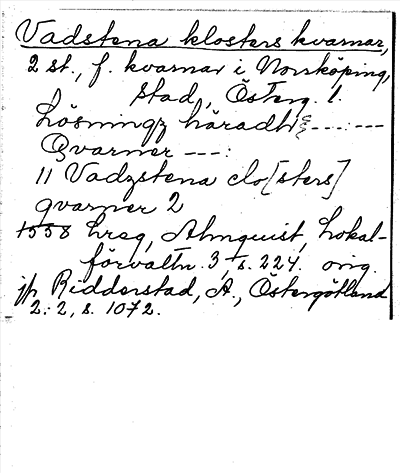 Vadstena klosters kvarnar,
2 st., f. kvarnar i Norrköping,
stad, Österg. l.
Lösningz häradh ---:---
Qvarner ---:
11 Vadzstena clo[sters]
qvarner 2
1558 hrsg, Almquist, Lokal-
förvaltn. 3, s. 224. orig.
jfr Ridderstad, A., Östergötland
2: 2, s. 1072.